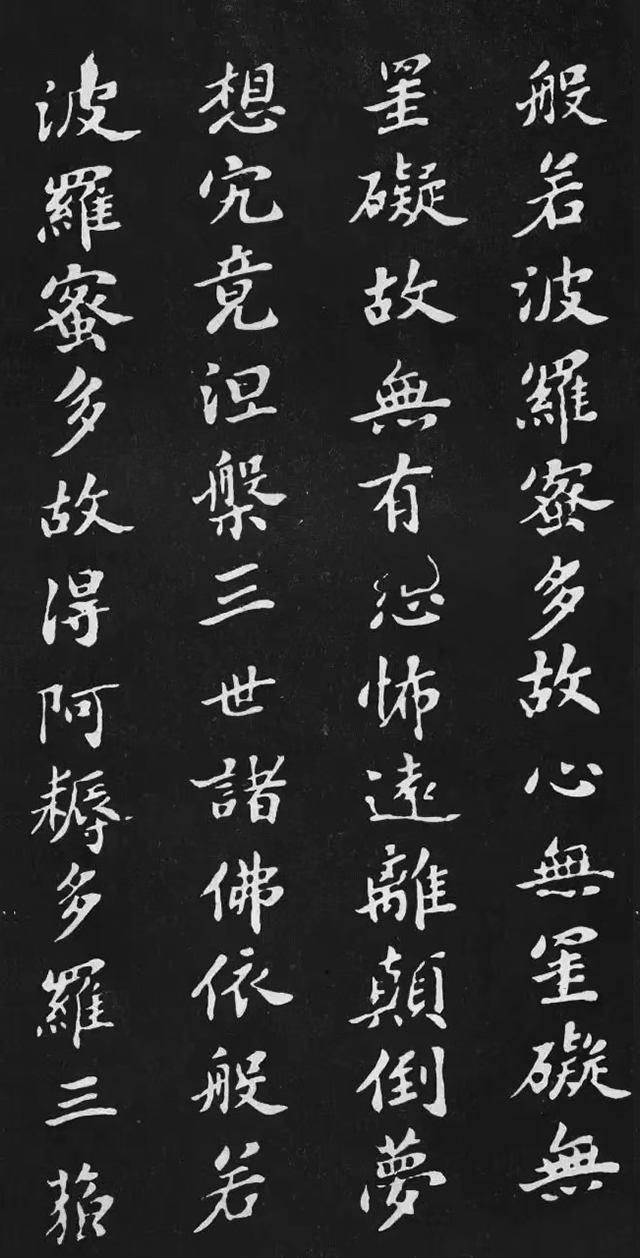 般若波羅蜜多故心無罣礙無
罣礙故無有恐怖遠離顛倒夢
想究竟涅槃三世諸佛依般若
波羅蜜多故得阿耨多羅三藐